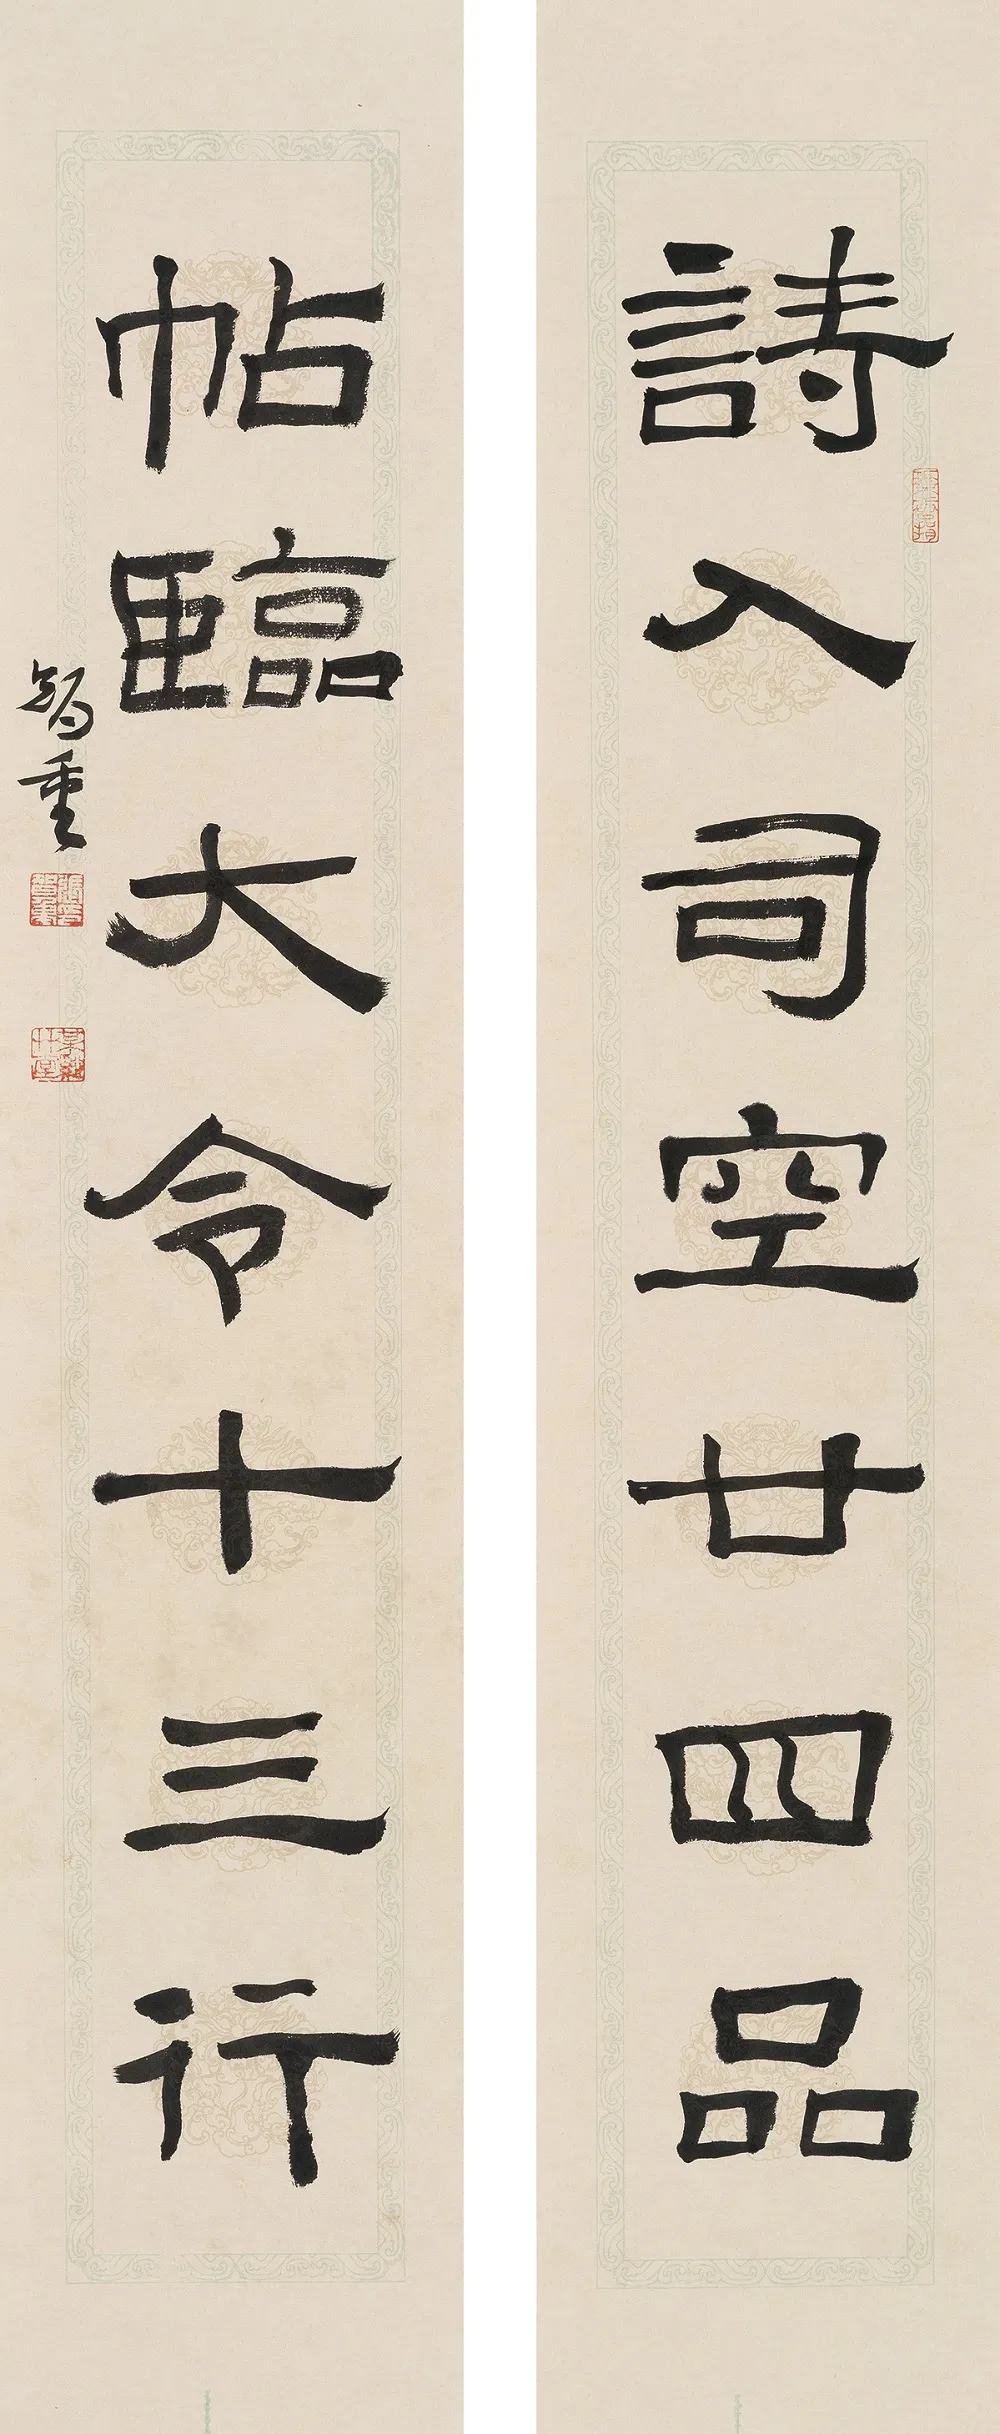 詩入司空廿四品
帖臨大令十三行
智重